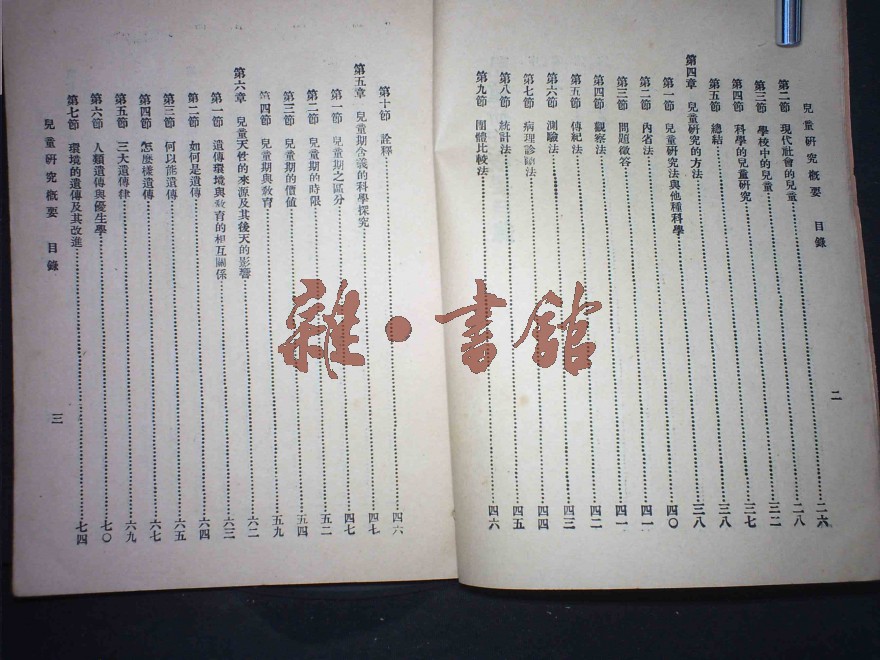 兒童研究概要 目錄
二
第二節 現代社會的兒童 二六
第三節 學校中的兒童 二八
第四節 科學的兒童研究 三二
第五節 總結 三七
第四章 兒童研究的方法 三八
第一節 兒童研究法與他種科學 三八
第二節 內省法 四〇
第三節 問題徵答 四一
第四節 觀察法 四一
第五節 傳紀法 四二
第六節 測驗法 四三
第七節 病理診斷法 四四
第八節 統計法 四五
第九節 團體比較法 四六
第十節 詮釋 四六
第五章 兒童期含義的科學探究 四七
第一節 兒童期之區分 四七
第二節 兒童期的時限 五二
第三節 兒童期的價值 五四
第四節 兒童期與教育 五九
第六章 兒童天性的來源及其後天的影響 六二
第一節 遺傳環境與教育的相互關係 六三
第二節 如何是遺傳 六四
第三節 何以能遺傳 六五
第四節 怎麼樣遺傳 六七
第五節 三大遺傳律 六九
第六節 人類遺傳與優生學 七〇
第七節 環境的遺傳及其改進 七四
兒童研究概要 目錄
三
雜·書館